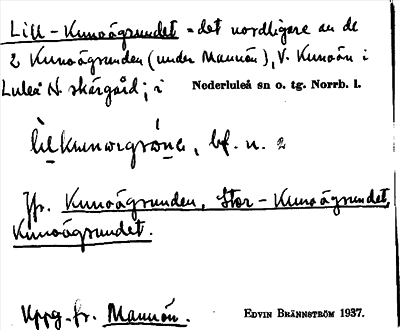 Lill-Kunoögrundet = det nordligare av de
2 Kunoögrunden (under Mannön), V. Kunoön i
Luleå N. skärgård; i Nederluleå sn o. tg. Norrb. l.
bf. n. 2
Jfr. Kunoögrunden, Stor-Kunoögrundet,
Kunoögrundet.
Uppg.-fr. Mannön. EDVIN BRÄNNSTRÖM 1937.